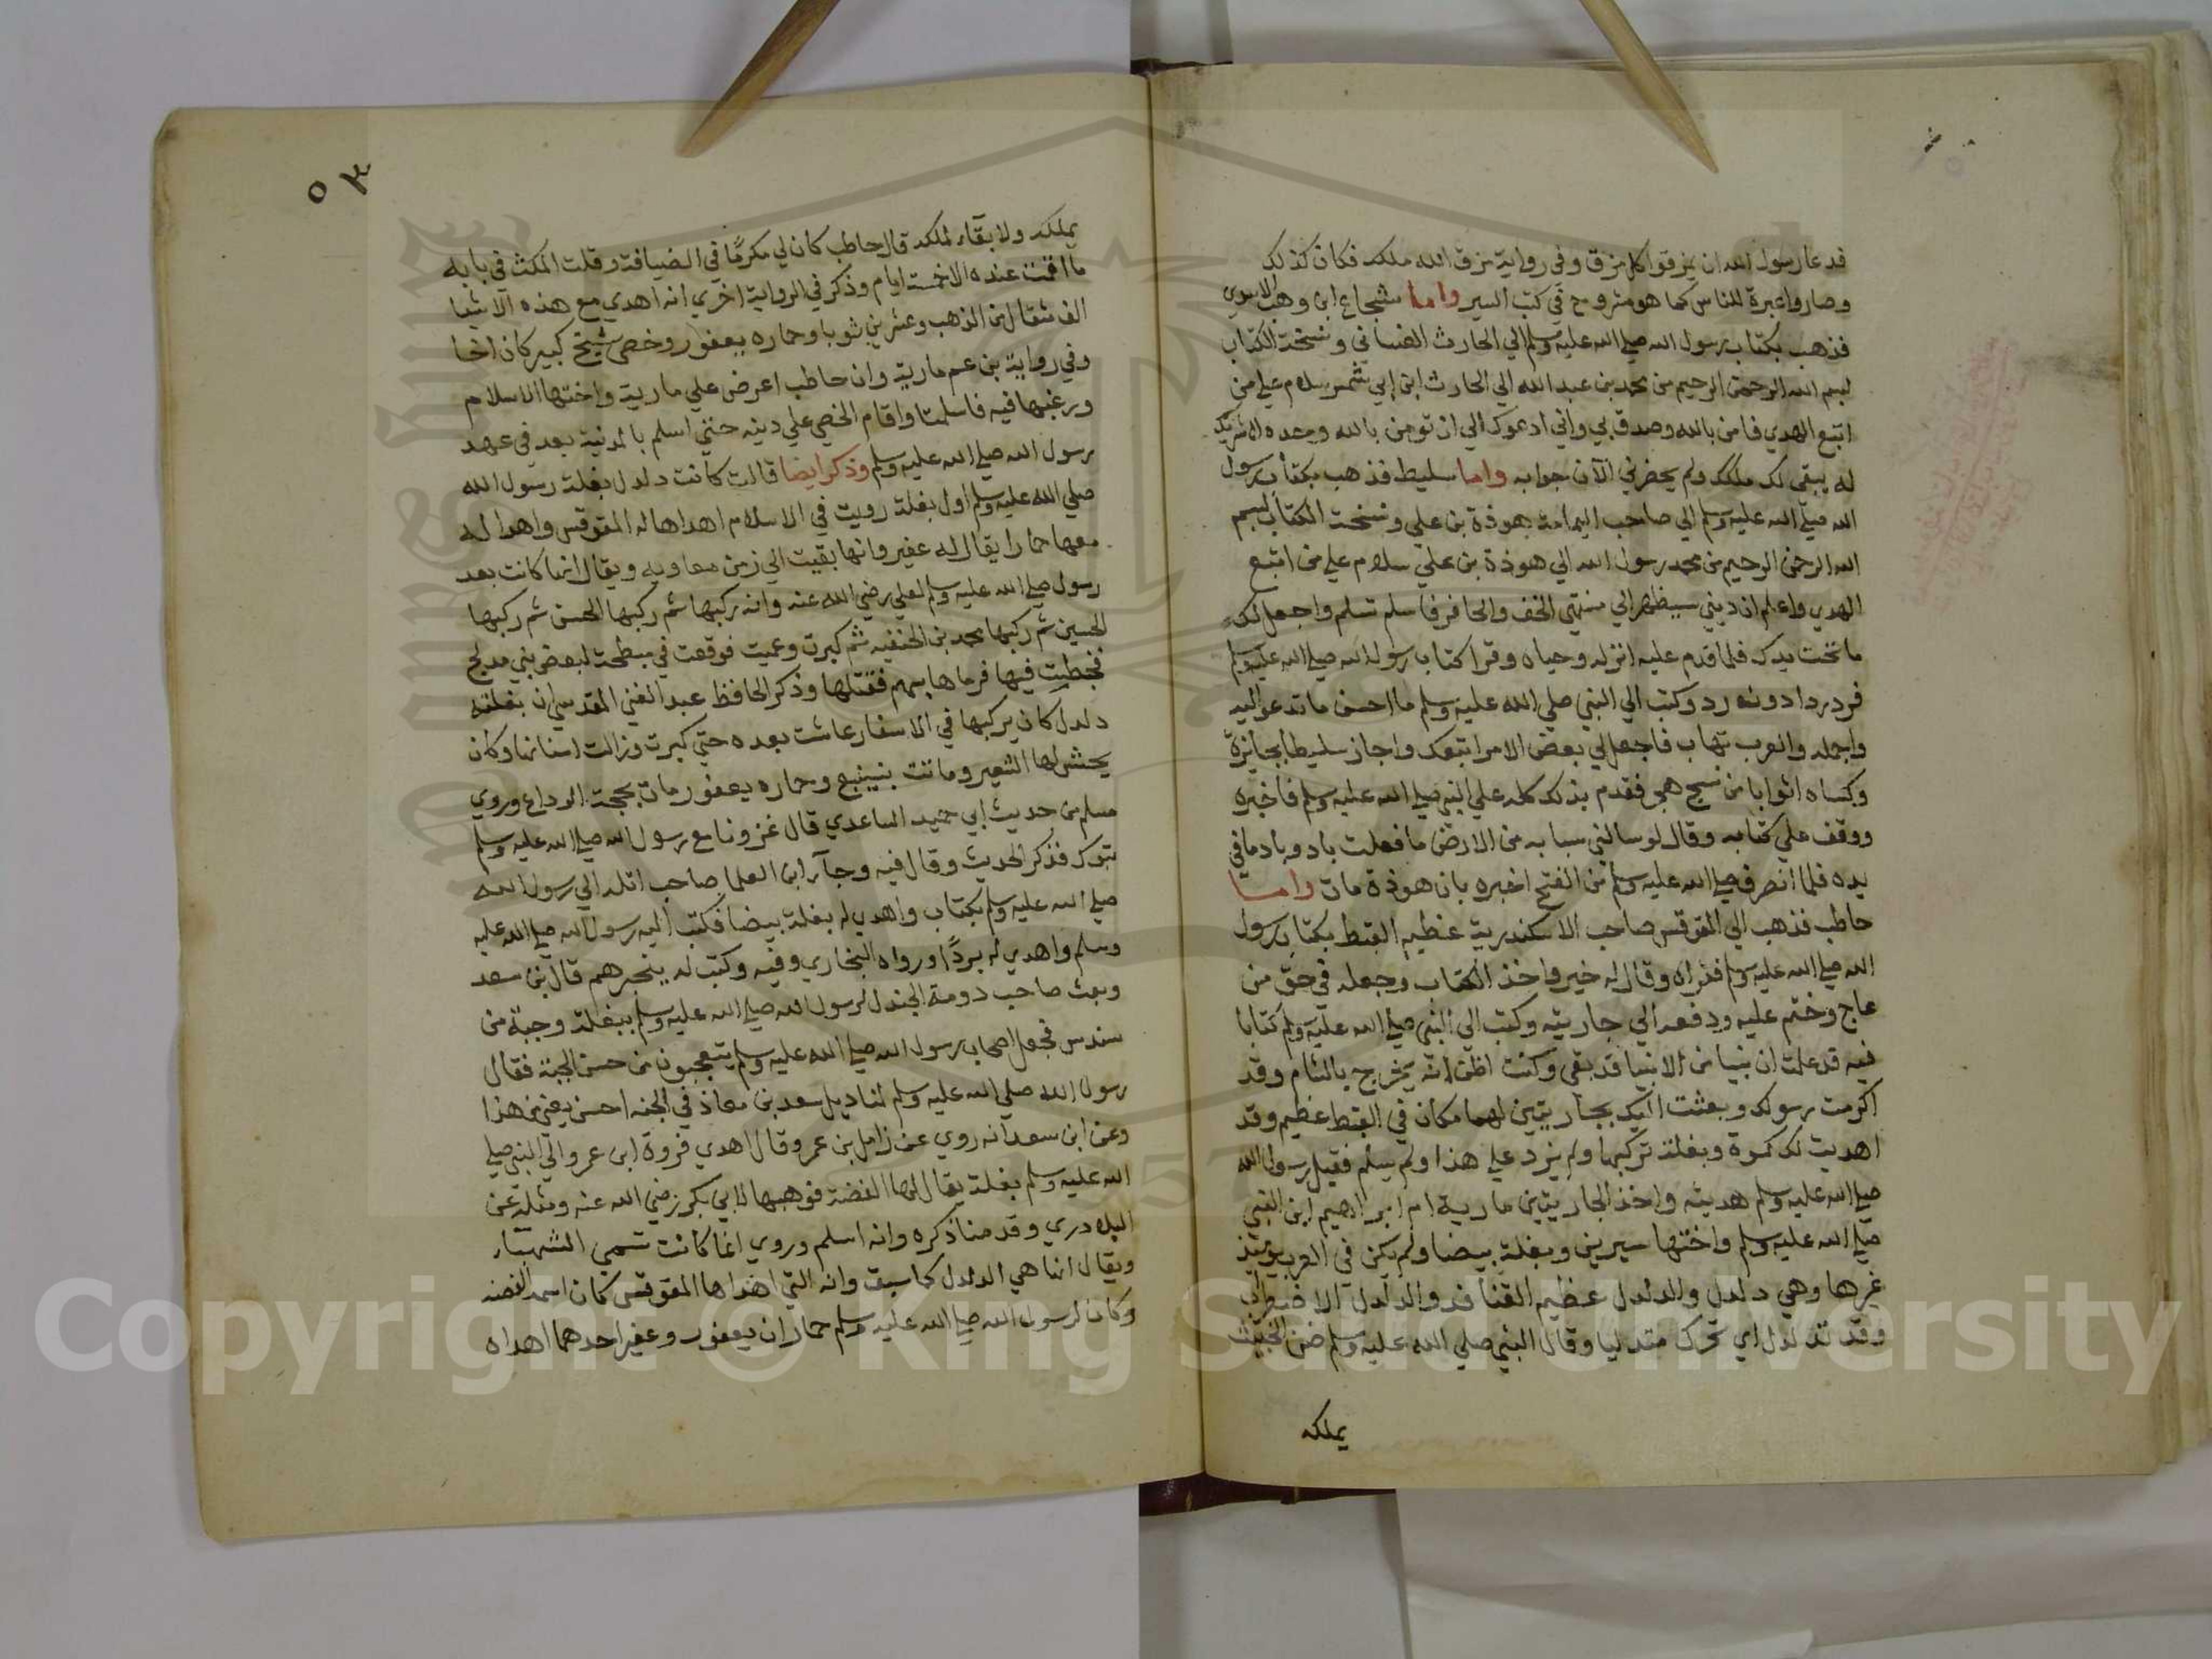 فدعا رسول الله ان يمزقوا كل مزق وفي رواية مزق الله ملكه فكان كذلك
وصاروا عبرة للناس كما هو مشروح في كتب السير واما شجاع ابن وهب الاسدي
فذهب بكتاب رسول الله صلى الله عليه وسلم الي الحارث الغساني ونسخت الكتاب
بسم الله الرحمن الرحيم من محمد بن عبد الله الي الحارث ابن ابي شمر سلام علي من
اتبع الهدي فامن بالله وصدق بي واني ادعوك الي ان تومن بالله وحده لا شريك
له يبقي لك ملكك ولم يحضرني الآن جوابه واما سليط فذهب بكتاب رسول
الله صلي الله عليه وسلم الي صاحب اليمامة هوذة بن علي ونسخت الكتاب بسم
الله الرحمن الرحيم من محمد رسول الله الي هوذة بن علي سلام علي من اتبع
الهدي واعلم ان ديني سيظهر الي منتهي الخف والحافر فاسلم تسلم واجعل لك
ما تحت يدك فلما قدم عليه انزله وحياه وقرا كتاب رسول الله صلي الله عليه وسلم
فرد ردا دون رد وكتب الي النبي صلي الله عليه وسلم ما احسن ما تدعوا اليه
واجمله والعرب تهاب فاجعل لي بعض الامر اتبعك واجاز سليطا بجايزة
وكساه اثوابا من نسج هجر فقدم بذلك كله علي النبي صلي الله عليه وسلم فاخبره
ووقف علي كتابه وقال لو سالني سبابه من الارض ما فعلت باد وباد ما في
يده فلما انصرف صلي الله عليه وسلم من الفتح اخبره بان هوذة مات واما
حاطب فذهب الي المقوقس صاحب الاسكندرية عظيم القبط بكتاب رسول
الله صلي الله عليه وسلم فقراه وقال له خير واخذ الكتاب وجعله في حق من
عاج وختم عليه ودفعه الي جاريته وكتب الي النبي صلي الله عليه وسلم كتابا
فيه قد علمت ان نبيا من الانبيا قد بقي وكنت اظن انه يخرج بالشام وقد
اكرمت رسولك وبعثت اليك بجاريتين لهما مكان في القبط عظيم وقد
اهديت لك كسوة وبغلة تركبها ولم يزد علي هذا ولم يسلم فقبل رسول الله
صلي الله عليه وسلم هديته واخذ الجاريتين مارية ام ابراهيم ابن النبي
صلي الله عليه وسلم واختها سيرين وبغلة بيضا ولم يكن في العرب يومئذ
غيرها وهي دلدل والدلدل عظيم القنافد والدلدل الاضطراب
وقد تدلدل اي تحرك متدليا وقال النبي صلي الله عليه وسلم ضن الخبيث
يملكه
يملكه ولا بقاء لملكه قال حاطب كان لي مكرمًا في الضيافة وقلت المكث في بابه
ما اقمت عنده الا خمسة ايام وذكر في الرواية اخري انه اهدي مع هذه الاشيا
الف مثقال من الذهب وعشرين ثوبا وحماره يعفور وخصي شيخ كبير كان اخا
وفي رواية بن عم مارية وان حاطب اعرض علي مارية واختها الاسلام
ورغبها فيه فاسلمتا واقام الخصي علي دينه حتي اسلم بالمدنية بعد في عهد
رسول الله صلي الله عليه وسلم وذكر ايضا قالت كانت دلدل بغلة رسول الله
صلي الله عليه وسلم اول بغلة رويت في الاسلام اهداها له المقوقس واهدا له
معها حمارا يقال له عفير وانها بقيت الي زمن معاويه ويقال انما كانت بعد
رسول صلي الله عليه وسلم لعلي رضي الله عنه وانه ركبها ثم ركبها الحسن ثم ركبها
الحسين ثم ركبها محمد بن الحنفيه ثم كبرت وعميت فوقعت في مبطحة لبعض بني مدلج
فخبطت فيها فرماها بسهم فقتلها وذكر الحافظ عبد الغني المقدسي ان بغلته
دلدل كان يركبها في الاسفار عاشت بعده حتي كبرت وزالت اسنانها وكان
يحش لها الشعير وماتت بينبع وحماره يعفور مات بحجة الوداع وروي
مسلم من حديث ابي حميد الساعدي قال غزونا مع رسول الله صلي الله عليه وسلم
تبوك فذكر الحديث وقال فيه وجآء ابن العلما صاحب ايله الي رسول الله
صلي الله عليه وسلم بكتاب واهدي له بغلة بيضا فكتب اليه رسول الله صلي الله عليه
وسلم واهدي له بردًا ورواه البخاري وفيه وكتب له ببحرهم قال بن سعد
وبعث صاحب دومة الجندل لرسول الله صلي الله عليه وسلم ببغلة وجبة من
سندس فجعل اصحاب رسول الله صلي الله عليه وسلم يتعجبون من حسن الجبة فقال
رسول الله صلي الله عليه وسلم لمناديل سعد بن معاذ في الجنه احسن يعني من هذا
وعن ابن سعد انه روي عن زامل بن عمرو قال اهدي فروة ابن عمرو الي النبي صلي
الله عليه وسلم بغلة يقال لها الفضة فوهبها لابي بكر رضي الله عنه ومثله عن
البلادري وقد منا ذكره وانه اسلم وروي انما كانت تسمي الشهباء
ويقال انما هي الدلدل كما سبق وانه التي اهداها المقوقس كان اسمه الفضه
وكان لرسول الله صلي الله عليه وسلم حماران يعفور وعفير احدهما اهداه
Copyright © King Saud University